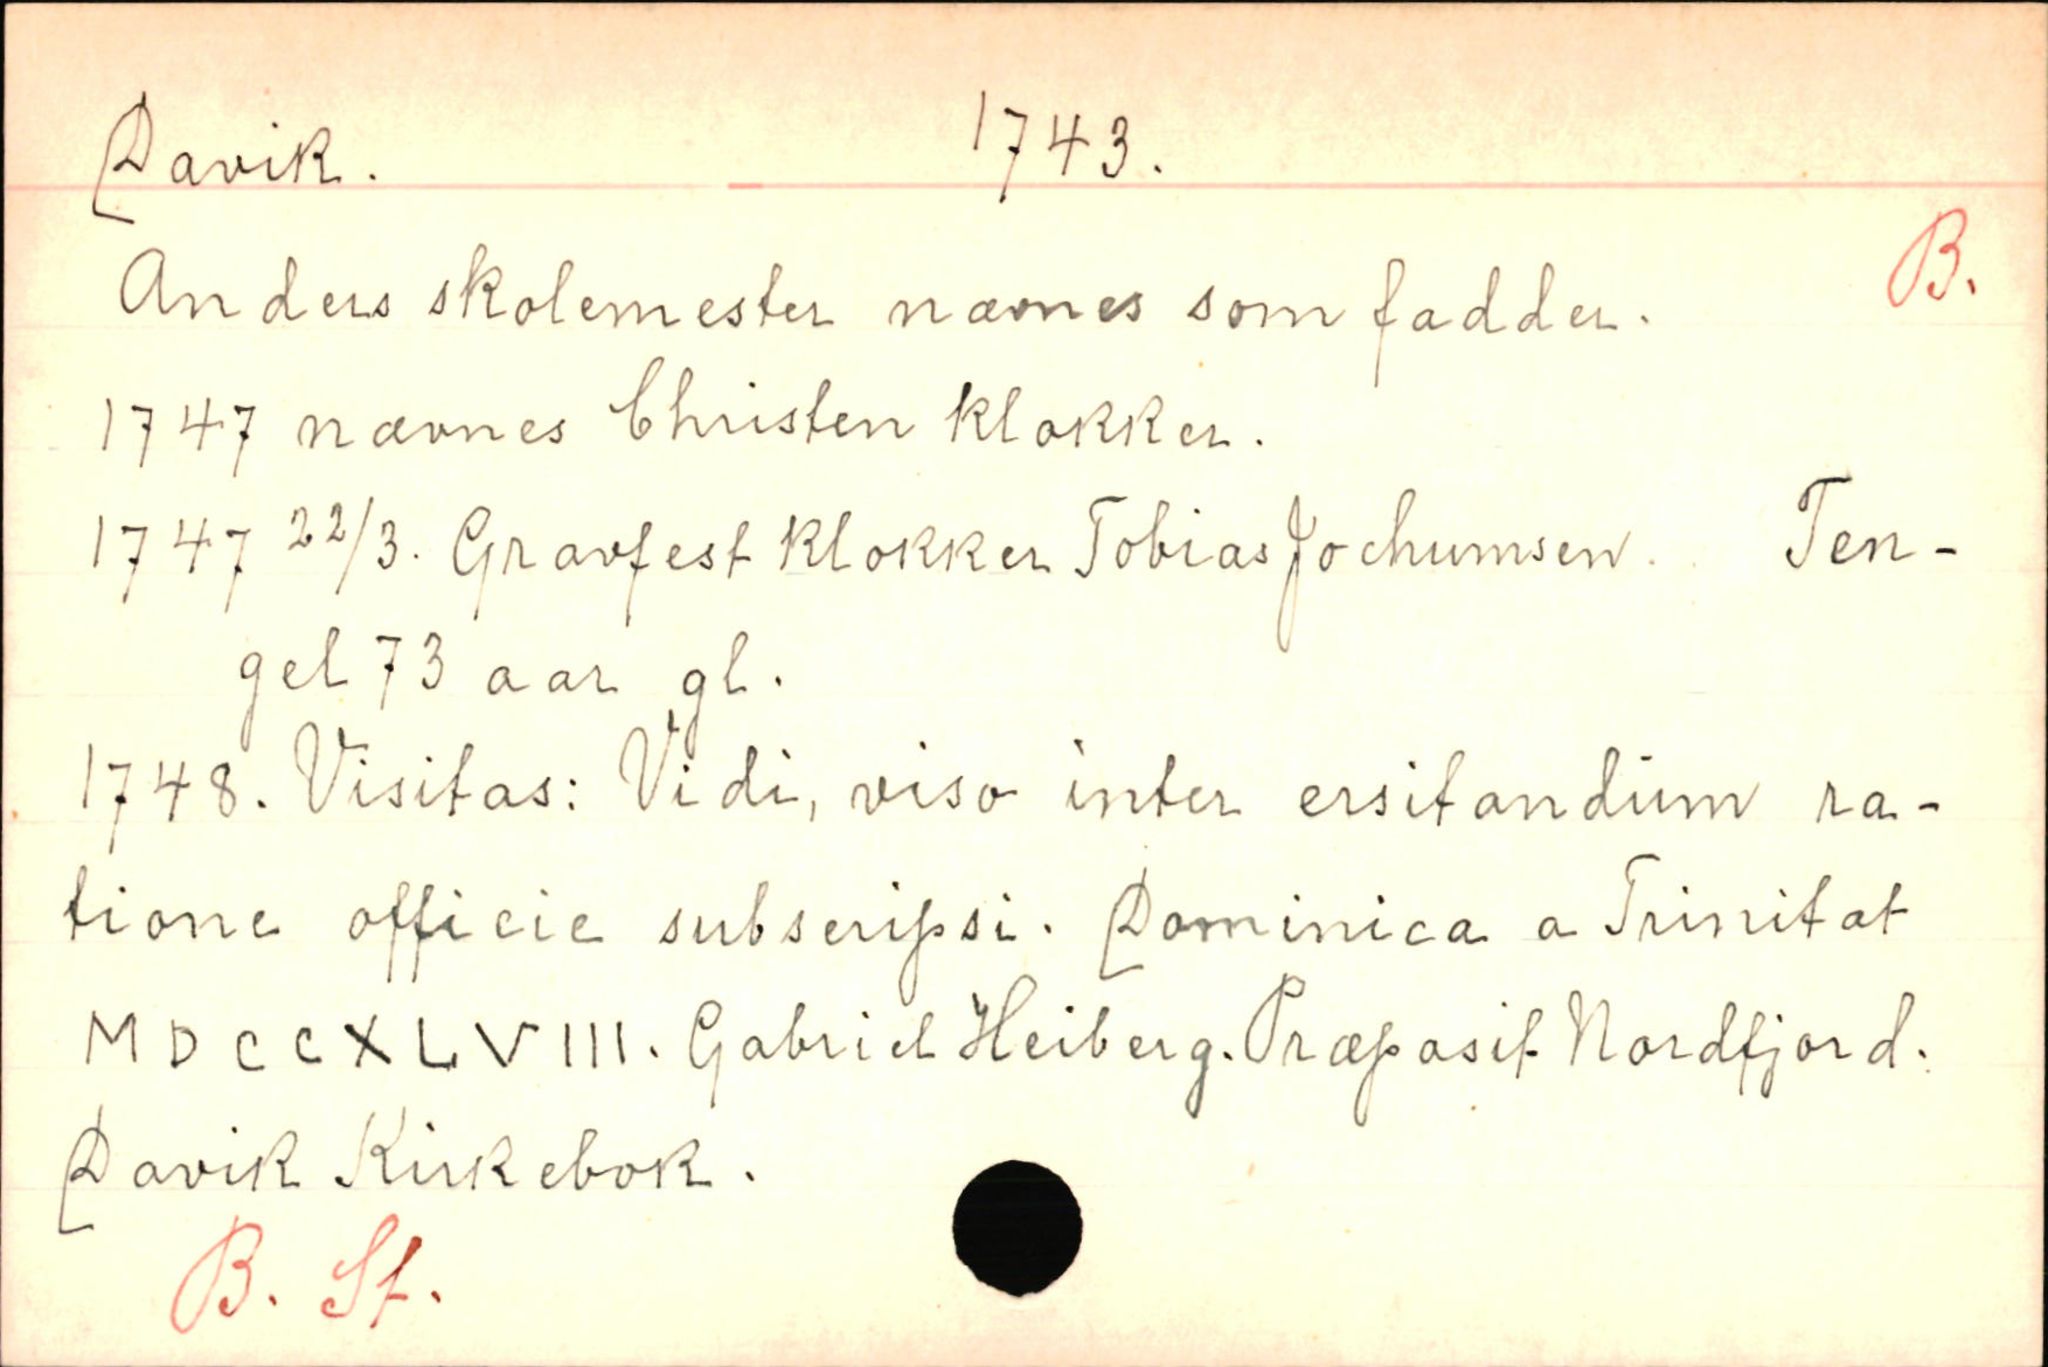 Davik. 1743.
B.
Anders skolemester nævnes som fadder.
1747 nævnes Christen klokker.
1747 22/3. Gravfest klokker Tobias Jochumsen. Ten-
gel 73 aar gl.
1748. Visitas: Vidi, viso inter ersitandum ra-
tione officie subscripsi. Dominica a Trinitat
MDCCXLVIII. Gabriel Heiberg. Præposit Nordfjord.
Davik Kirkebok.
B. St.